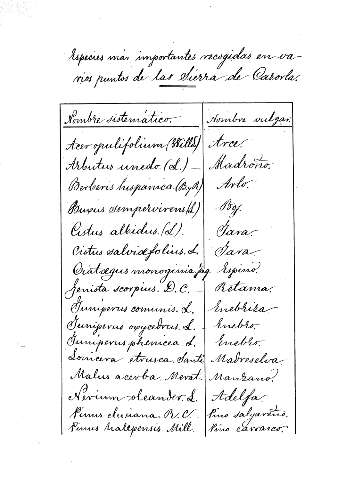 Especies más importantes recogidas en va-
rios puntos de las Sierra de Cazorla.
Nombre sistemático. Nombre vulgar.
Acer opulifolium (Willd) Arce.
Arbutus unedo (L.) — Madroño.
Berberis hispanica (B. y R) Arlo.
Buxus sempervirens (L) Boj.
Cistus albidus. (L). Jara.
Cistus salviæfolius. L. Jara.
Cratægus monogina Jaq. Espino.
Genista scorpius. D. C. Retama.
Juniperus comunis. L. Enebrita
Juniperus oxycedrus. L. Enebro.
Juniperus phenicea L. Enebro.
Lonicera etrusca Santi. Madreselva.
Malus acerba. Merat. Manzano.
Nerium oleander. L. Adelfa
Pinus clusiana. R. C. Pino salgareño.
Pinus halepensis Mill. Pino carrasco.